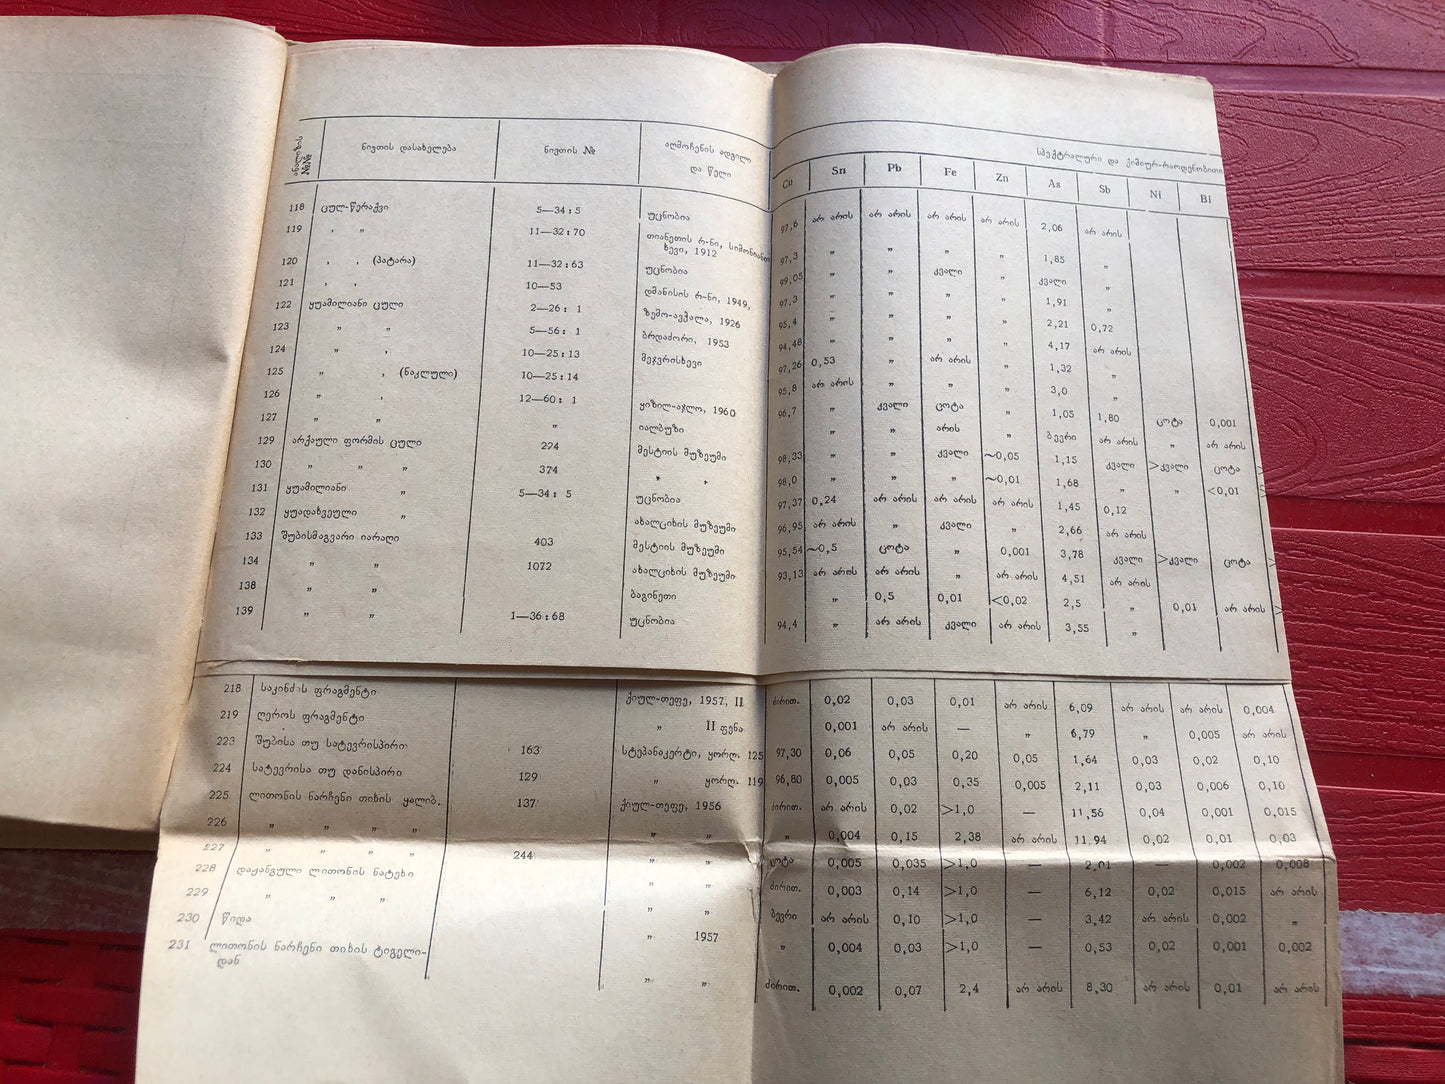 ანალიზის №№ ნივთის დასახელება ნივთის № აღმოჩენის ადგილი და წელი სპექტრალური და ქიმიურ-რაოდენობითი
Cu Sn Pb Fe Zn As Sb Ni Bi
118 ცულ-წერაქვი 5—34:5 უცნობია 97,6 არ არის არ არის არ არის არ არის 2,06 არ არის
119 „ „ 11—32:70 თიანეთის რ-ნი, სიმონიანთ ხევი, 1912 97,3 „ „ „ „ 1,85 „
120 „ „ (პატარა) 11—32:63 უცნობია 99,05 „ „ კვალი „ კვალი „
121 „ „ 10—53 დმანისის რ-ნი, 1949, 97,3 „ „ „ „ 1,91 „
122 ყუამილიანი ცული 2—26: 1 ზემო-ავჭალა, 1926 95,4 „ „ „ „ 2,21 0,72
123 „ „ 5—56: 1 ბრდაძორი, 1953 94,48 „ „ „ „ 4,17 არ არის
124 „ „ 10—25:13 მეჯვრისხევი 97,26 0,53 „ არ არის „ 1,32 „
125 „ „ (ნაკლული) 10—25:14 95,8 არ არის „ „ „ 3,0 „
126 „ „ 12—60: 1 ყიზილ-აჯლო, 1960 96,7 „ კვალი ცოტა „ 1,05 1,80 ცოტა 0,001
127 „ „ „ იალბუზი „ „ არის „ ბევრი არ არის „ არ არის
129 არქაული ფორმის ცული 224 მესტიის მუზეუმი 98,33 „ „ კვალი ~0,05 1,15 კვალი >კვალი ცოტა >
130 „ „ „ 374 „ „ 98,0 „ „ „ ~0,01 1,68 „ „ <0,01
131 ყუამილიანი „ 5—34: 5 უცნობია 97,37 0,24 არ არის არ არის არ არის 1,45 0,12
132 ყუადახვეული „ ახალციხის მუზეუმი 96,95 არ არის „ კვალი „ 2,66 არ არის
133 შუბისმაგვარი იარაღი 403 მესტიის მუზეუმი 95,54 ~0,5 ცოტა „ 0,001 3,78 კვალი >კვალი ცოტა >
134 „ „ 1072 ახალციხის მუზეუმი 93,13 არ არის არ არის „ არ არის 4,51 არ არის
138 „ „ ბაგინეთი „ 0,5 0,01 <0,02 2,5 „ 0,01 არ არის >
139 „ „ 1—36:68 უცნობია 94,4 „ არ არის კვალი არ არის 3,55 „
218 საკინძის ფრაგმენტი ქიულ-თეფე, 1957, II ძირით. 0,02 0,03 0,01 არ არის 6,09 არ არის არ არის 0,004
219 ღეროს ფრაგმენტი „ II ფენა 0,001 არ არის — „ 6,79 „ 0,005 არ არის
223 შუბისა თუ სატევრისპირი 163 სტეპანაკერტი, ყორღ. 125 97,30 0,06 0,05 0,20 0,05 1,64 0,03 0,02 0,10
224 სატევრისა თუ დანისპირი 129 „ ყორღ. 119 96,80 0,005 0,03 0,35 0,005 2,11 0,03 0,006 0,10
225 ლითონის ნარჩენი თიხის ყალიბ. 137 ქიულ-თეფე, 1956 ძირით. არ არის 0,02 >1,0 — 11,56 0,04 0,001 0,015
226 „ „ „ „ „ „ „ 0,004 0,15 2,38 არ არის 11,94 0,02 0,01 0,03
227 „ „ „ „ 244 „ „ ცოტა 0,005 0,035 >1,0 — 2,01 — 0,002 0,008
228 დაჟანგული ლითონის ნატეხი „ „ ძირით. 0,003 0,14 >1,0 — 6,12 0,02 0,015 არ არის
229 „ „ „ „ „ ბევრი არ არის 0,10 >1,0 — 3,42 არ არის 0,002 „
230 წიდა „ 1957 „ 0,004 0,03 >1,0 — 0,53 0,02 0,001 0,002
231 ლითონის ნარჩენი თიხის ტიგელი-
დან „ „ ძირით. 0,002 0,07 2,4 არ არის 8,30 არ არის 0,01 არ არის